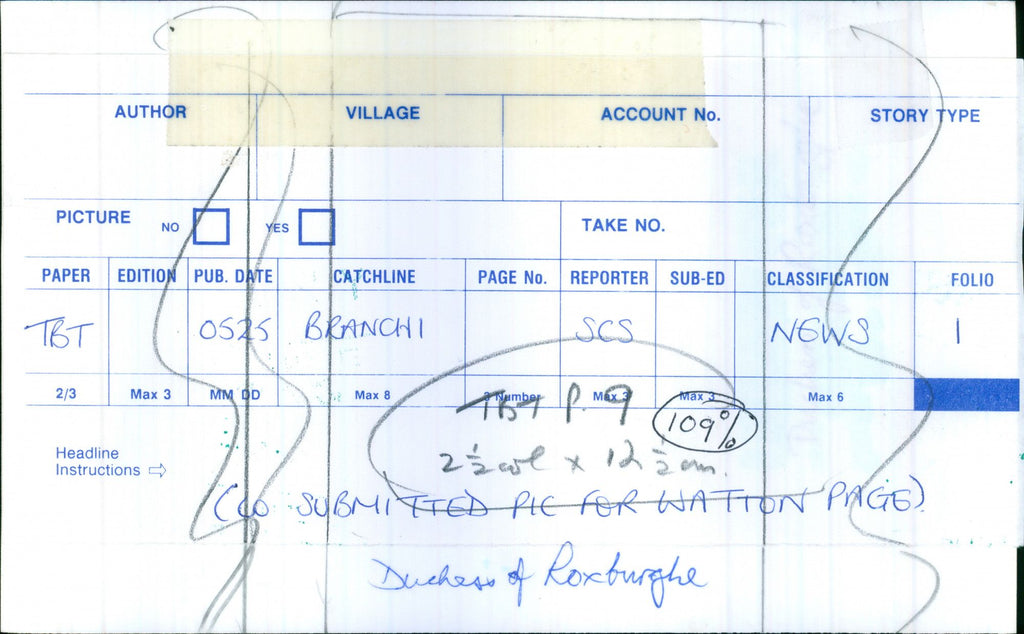 AUTHOR VILLAGE ACCOUNT No. STORY TYPE
PICTURE NO YES TAKE NO.
PAPER EDITION PUB. DATE CATCHLINE PAGE No. REPORTER SUB-ED CLASSIFICATION FOLIO
TBT 0525 BRANCHI SCS NEWS 1
2/3 Max 3 MM DD Max 8 3 Number Max 3 Max 3 Max 6
TBT P. 9 109%
Headline
Instructions ⇨
2½ col x 12½ cm.
(CO SUBMITTED PIC FOR WATTON PAGE)
Duchess of Roxburghe